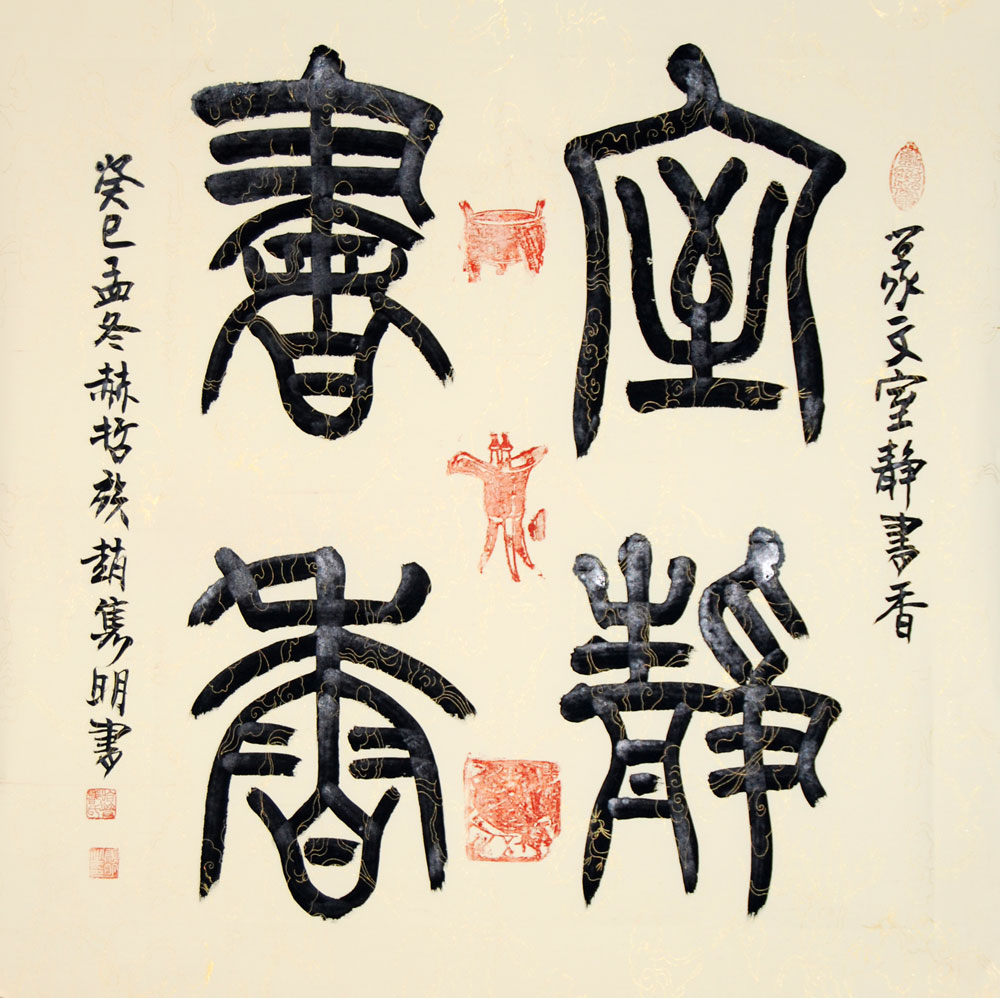 篆文室静書香
室靜
書香
癸巳孟冬赫哲族趙隽明書